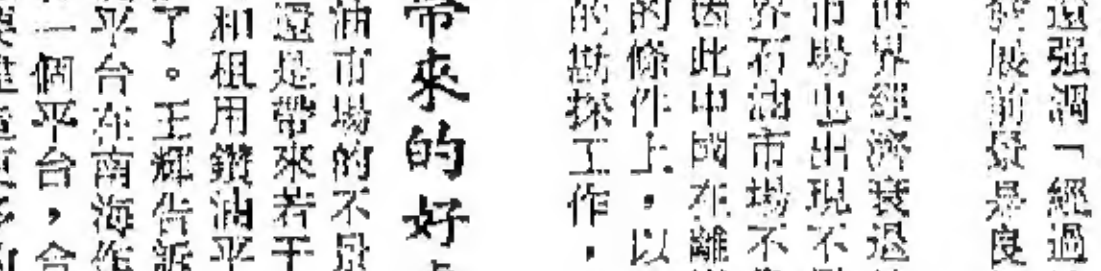 還强調「經過
發展前景是度
世界經濟衰退
市場也出現不
界石油市場不
因此中國在離
的條件上，以
的勘探工作，
帶來的好
油市場的不景
還是帶來若干
和租用鑽油平
了。王輝告訴
平台在南海作
一個平台，合